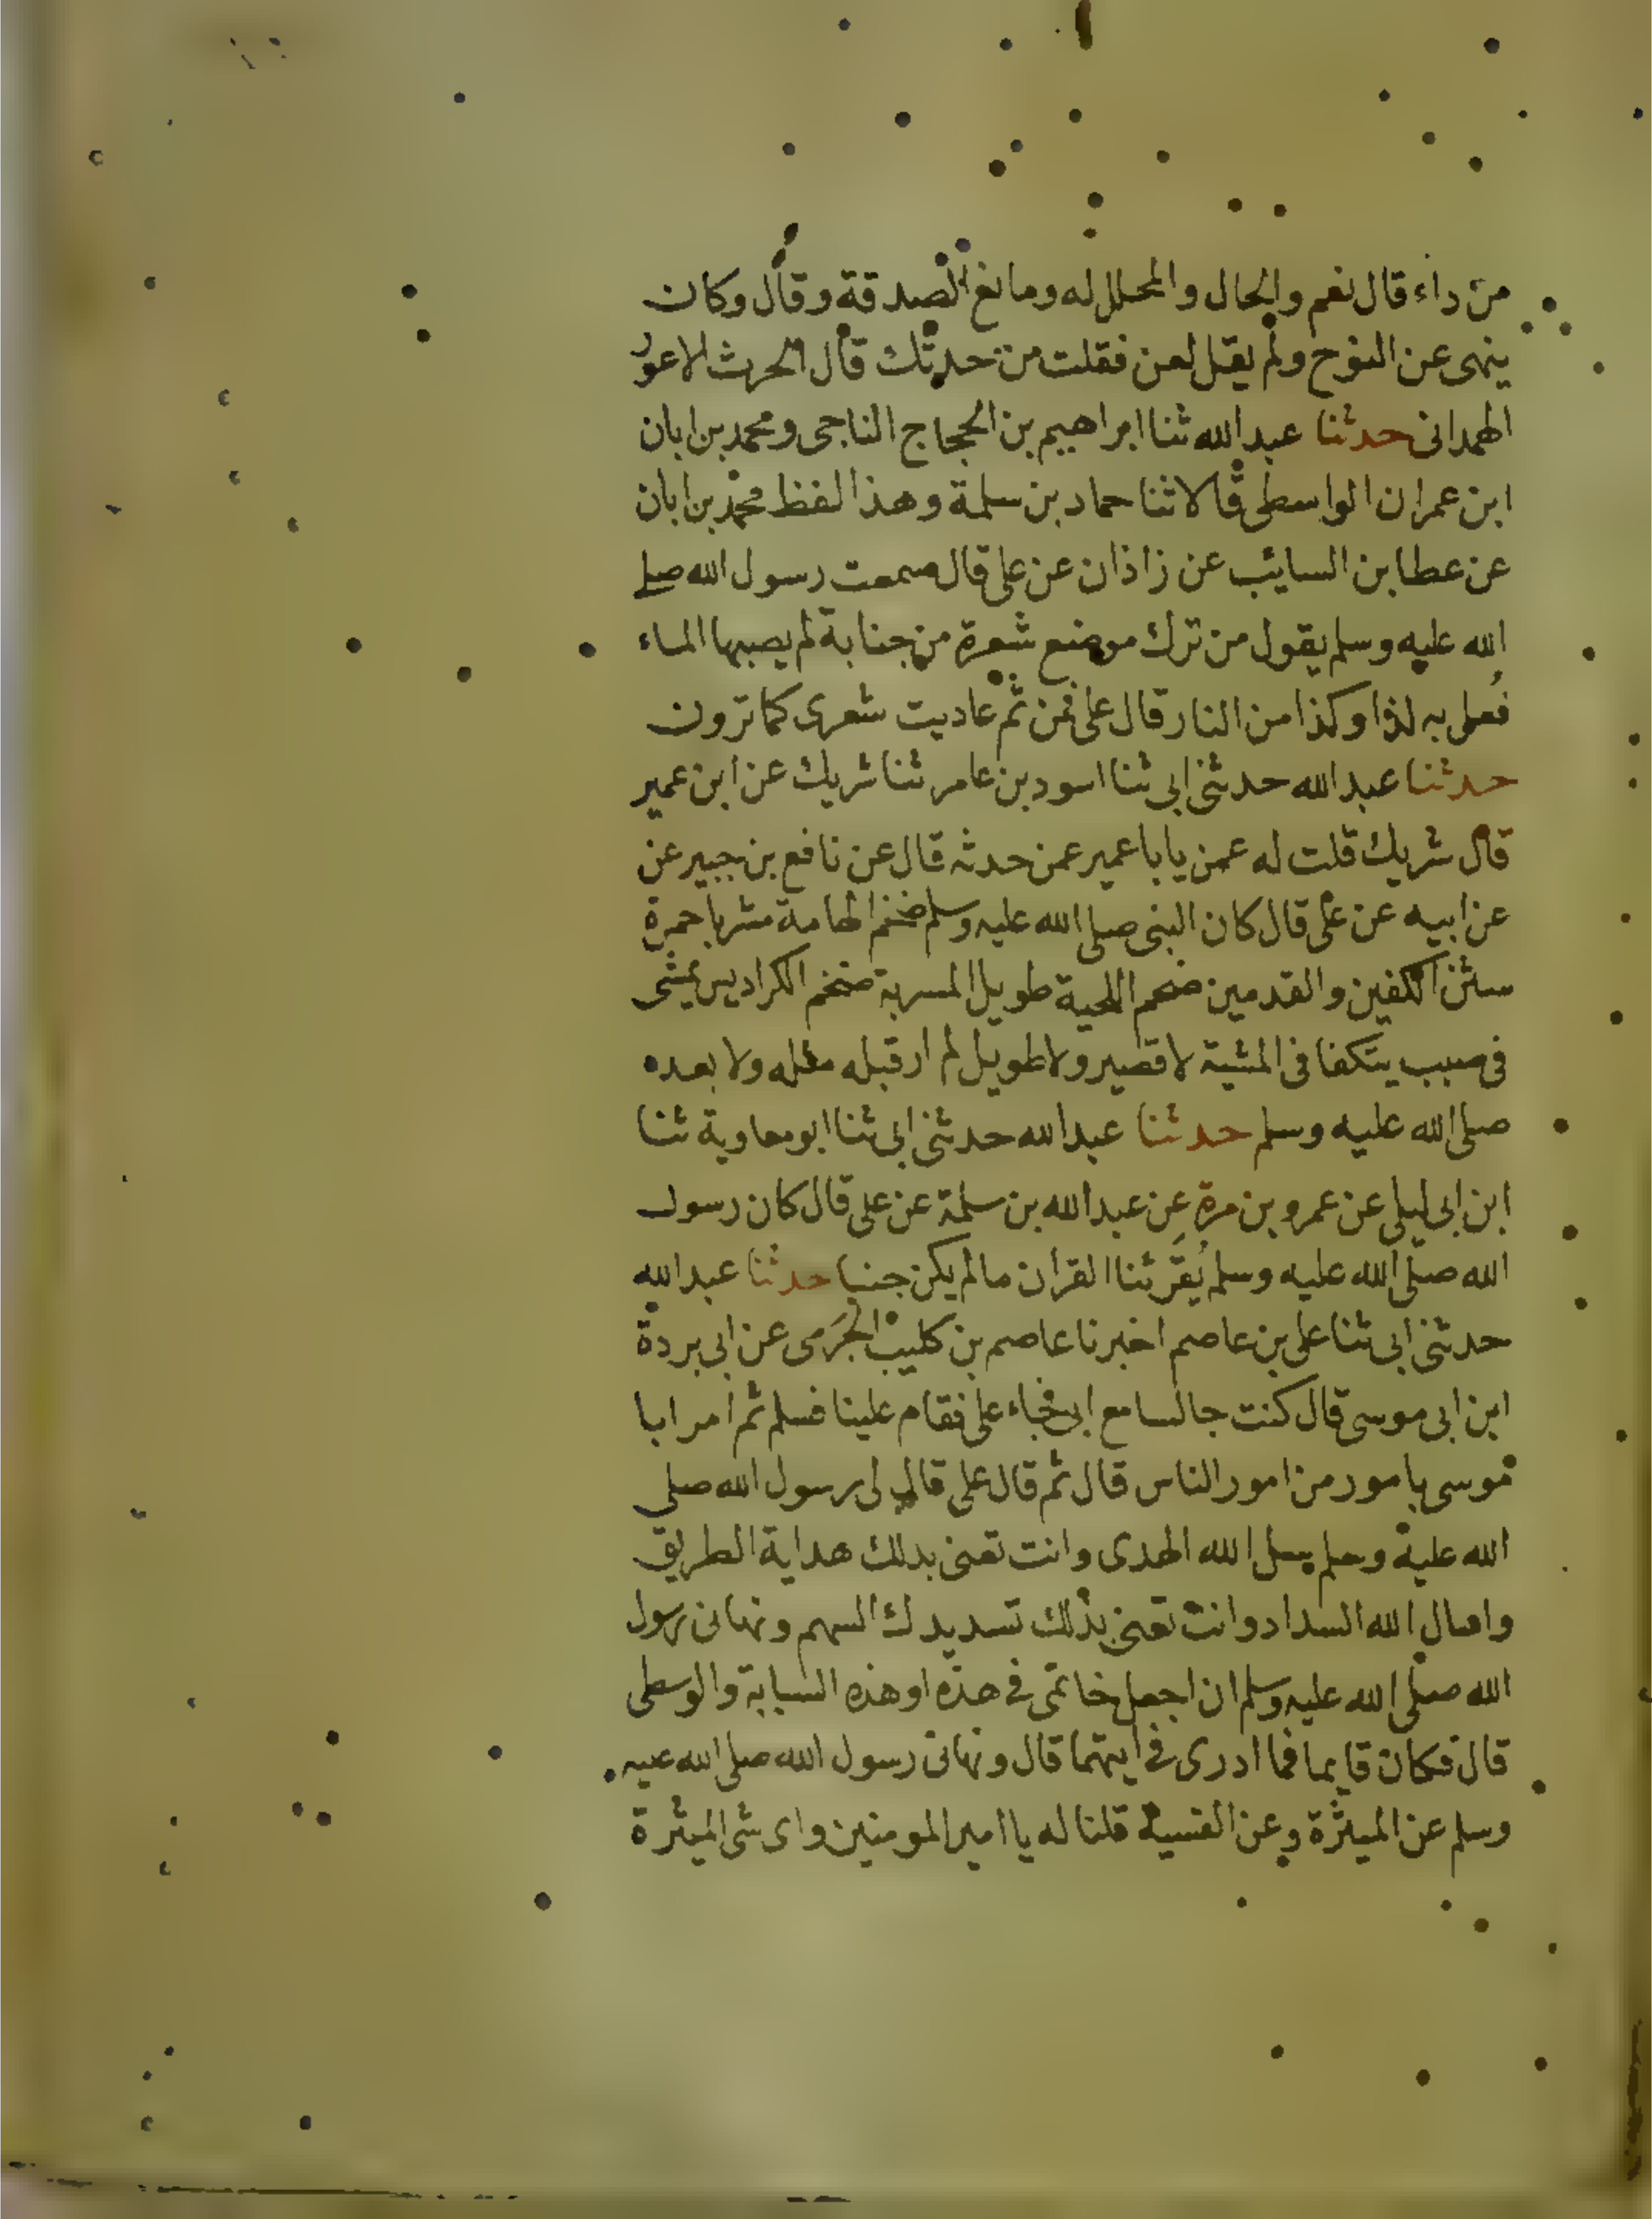 من داء قال نعم والحال والمحلل له ومانع الصدقة وقال وكان
ينهى عن النوح ولم يقل لعن فقلت من حدثك قال الحرث الاعور
الهمدانى حدثنا عبد الله ثنا ابراهيم بن الحجاج الناجى ومحمد بن ابان
ابن عمران الواسطى قالا ثنا حماد بن سلمة وهذا لفظ محمد بن ابان
عن عطا بن السايب عن زاذان عن على قال سمعت رسول الله صلى
الله عليه وسلم يقول من ترك موضع شعرة من جنابة لم يصبها الماء
فُعل به لذا وكذا من النار قال على فمن ثم عاديت شعرى كما ترون
حدثنا عبد الله حدثنى ابى ثنا اسود بن عامر ثنا شريك عن ابن عمير
قال شريك قلت له عمن يابا عمير عمن حدثه قال عن نافع بن جبير عن
عن ابيه عن على قال كان النبى صلى الله عليه وسلم ضخم الهامة مشربا حمرة
شثن الكفين والقدمين ضخم اللحية طويل المسربة ضخم الكراديس يمشى
فى صبب يتكفا فى المشية لا قصير ولا طويل لم ار قبله مثله ولا بعده
صلى الله عليه وسلم حدثنا عبد الله حدثنى ابى ثنا ابو معاوية ثنا
ابن ابى ليلى عن عمرو بن مرة عن عبد الله بن سلمة عن على قال كان رسول
الله صلى الله عليه وسلم يُقَرئنا القران ما لم يكن جنبا حدثنا عبد الله
حدثنى ابى ثنا على بن عاصم اخبرنا عاصم بن كليب الجَرمى عن ابى بردة
ابن ابى موسى قال كنت جالسا مع ابى فجاء على فقام علينا فسلم ثم امر ابا
موسى بامور من امور الناس قال ثم قال على قال لى رسول الله صلى
الله عليه وسلم سل الله الهدى وانت تعنى بذلك هداية الطريق
واسال الله السداد وانت تعنى بذلك تسديدك السهم ونهانى رسول
الله صلى الله عليه وسلم ان اجعل خاتمى فى هذه او هذه السبابة والوسطى
قال فكان قايما فما ادرى فى ايتهما قال ونهانى رسول الله صلى الله عليه
وسلم عن الميثرة وعن القسية قلنا له يا امير المومنين واى شى الميثرة